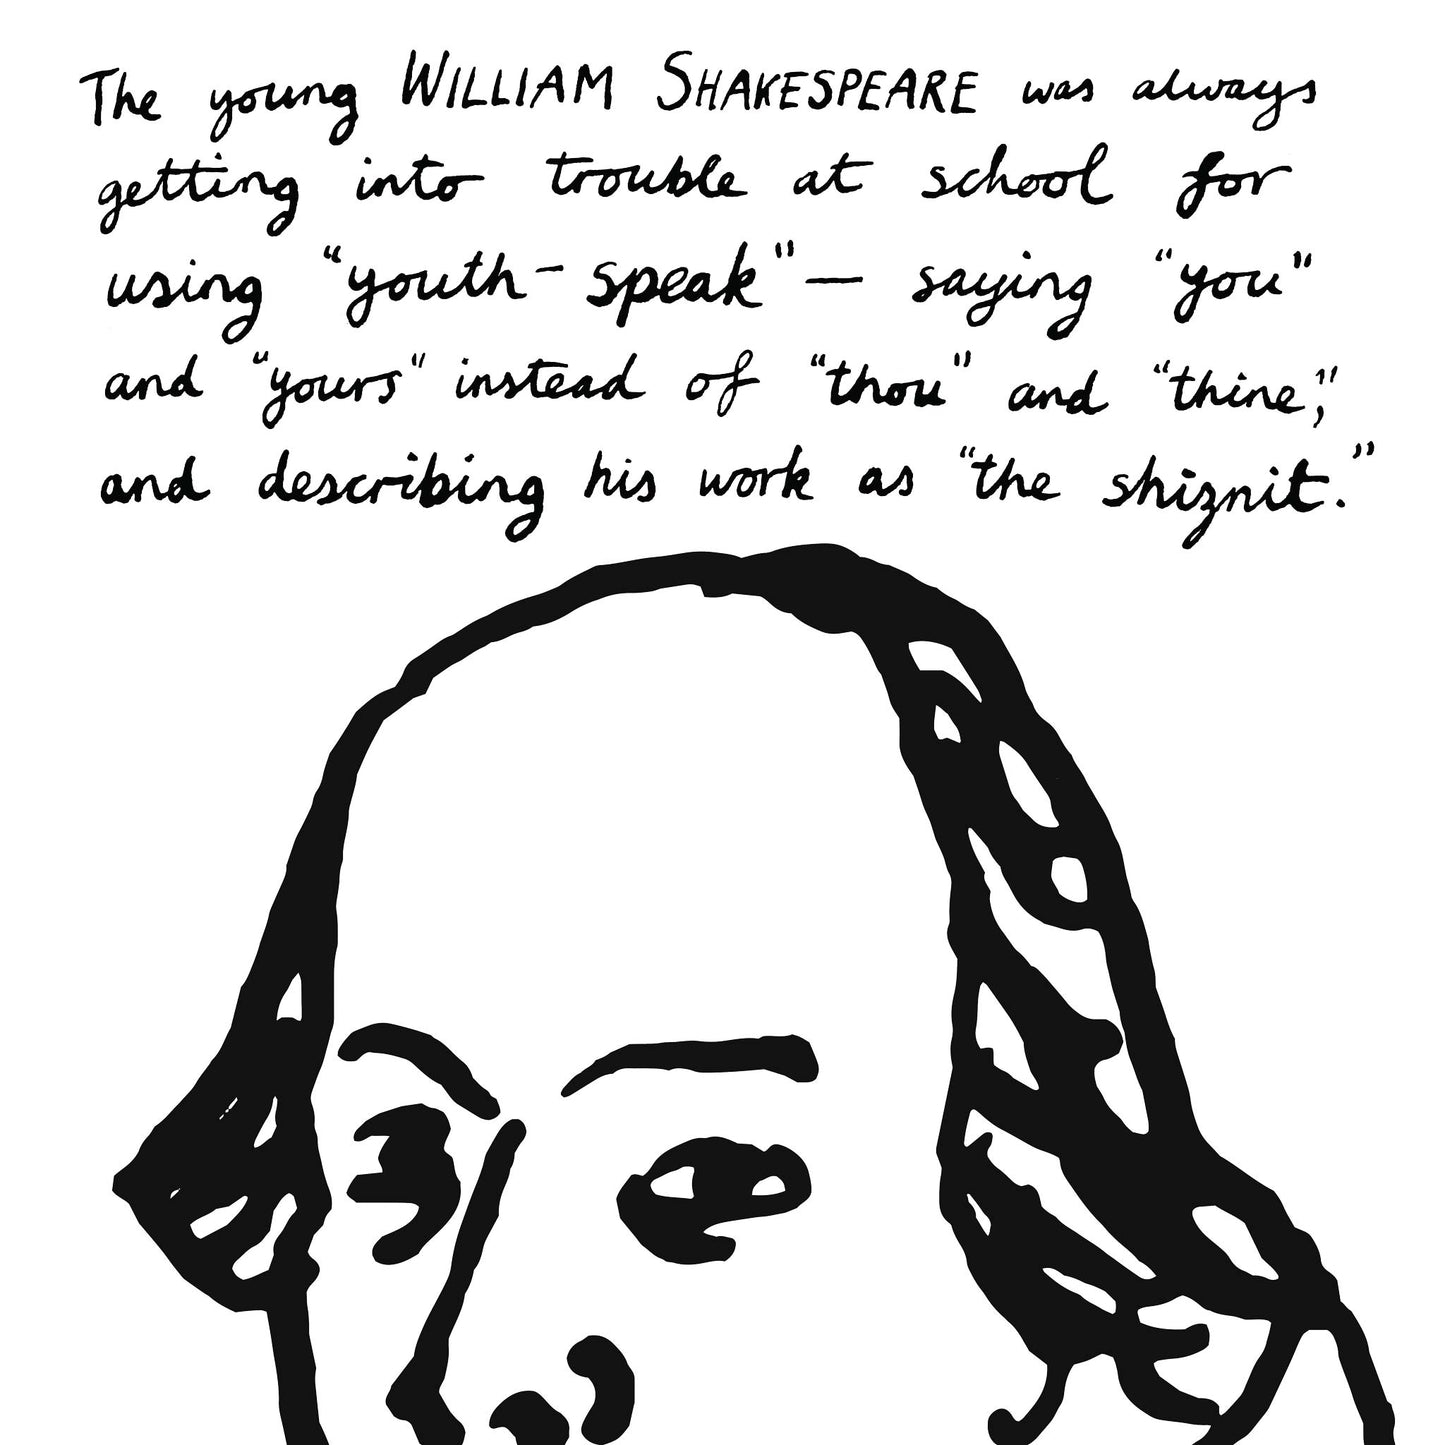 The young WILLIAM SHAKESPEARE was always
getting into trouble at school for
using “youth-speak” — saying “you”
and “yours” instead of “thou” and “thine,”
and describing his work as “the shiznit.”